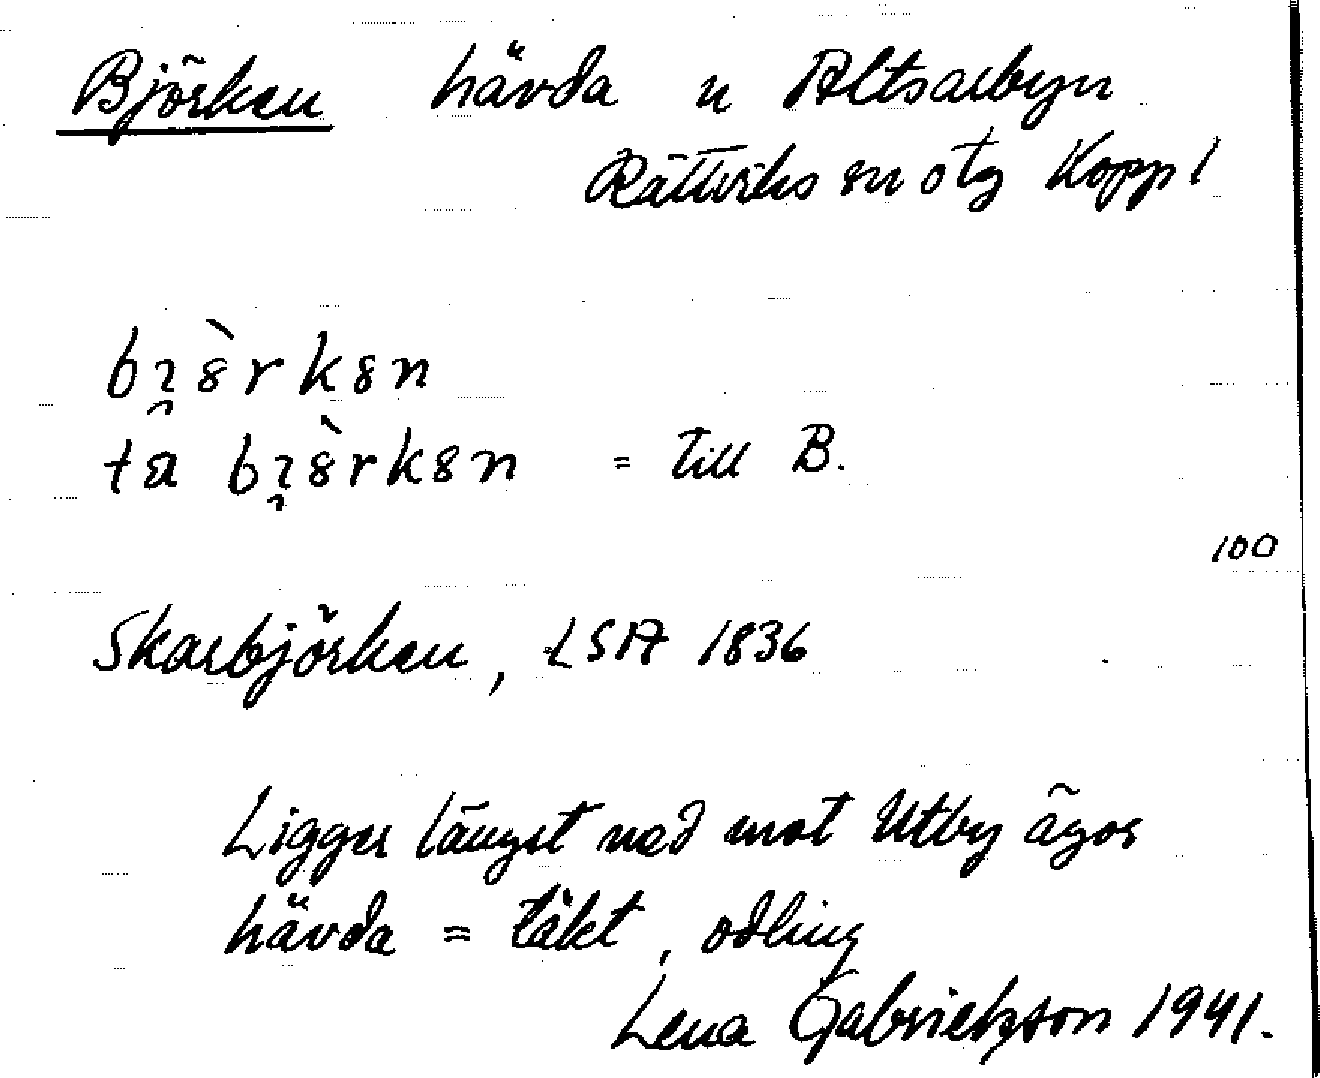 Björken hävda u Altsarbyn
Rättviks sn o tg Kopp l
bi̯ö̀rkön
ta bi̯ö̀rkön = till B.
100
Skarbjörken, LSA 1836
Ligger längst ned mot Utby ägor
hävda = täkt, odling
Lena Gabrielsson 1941.